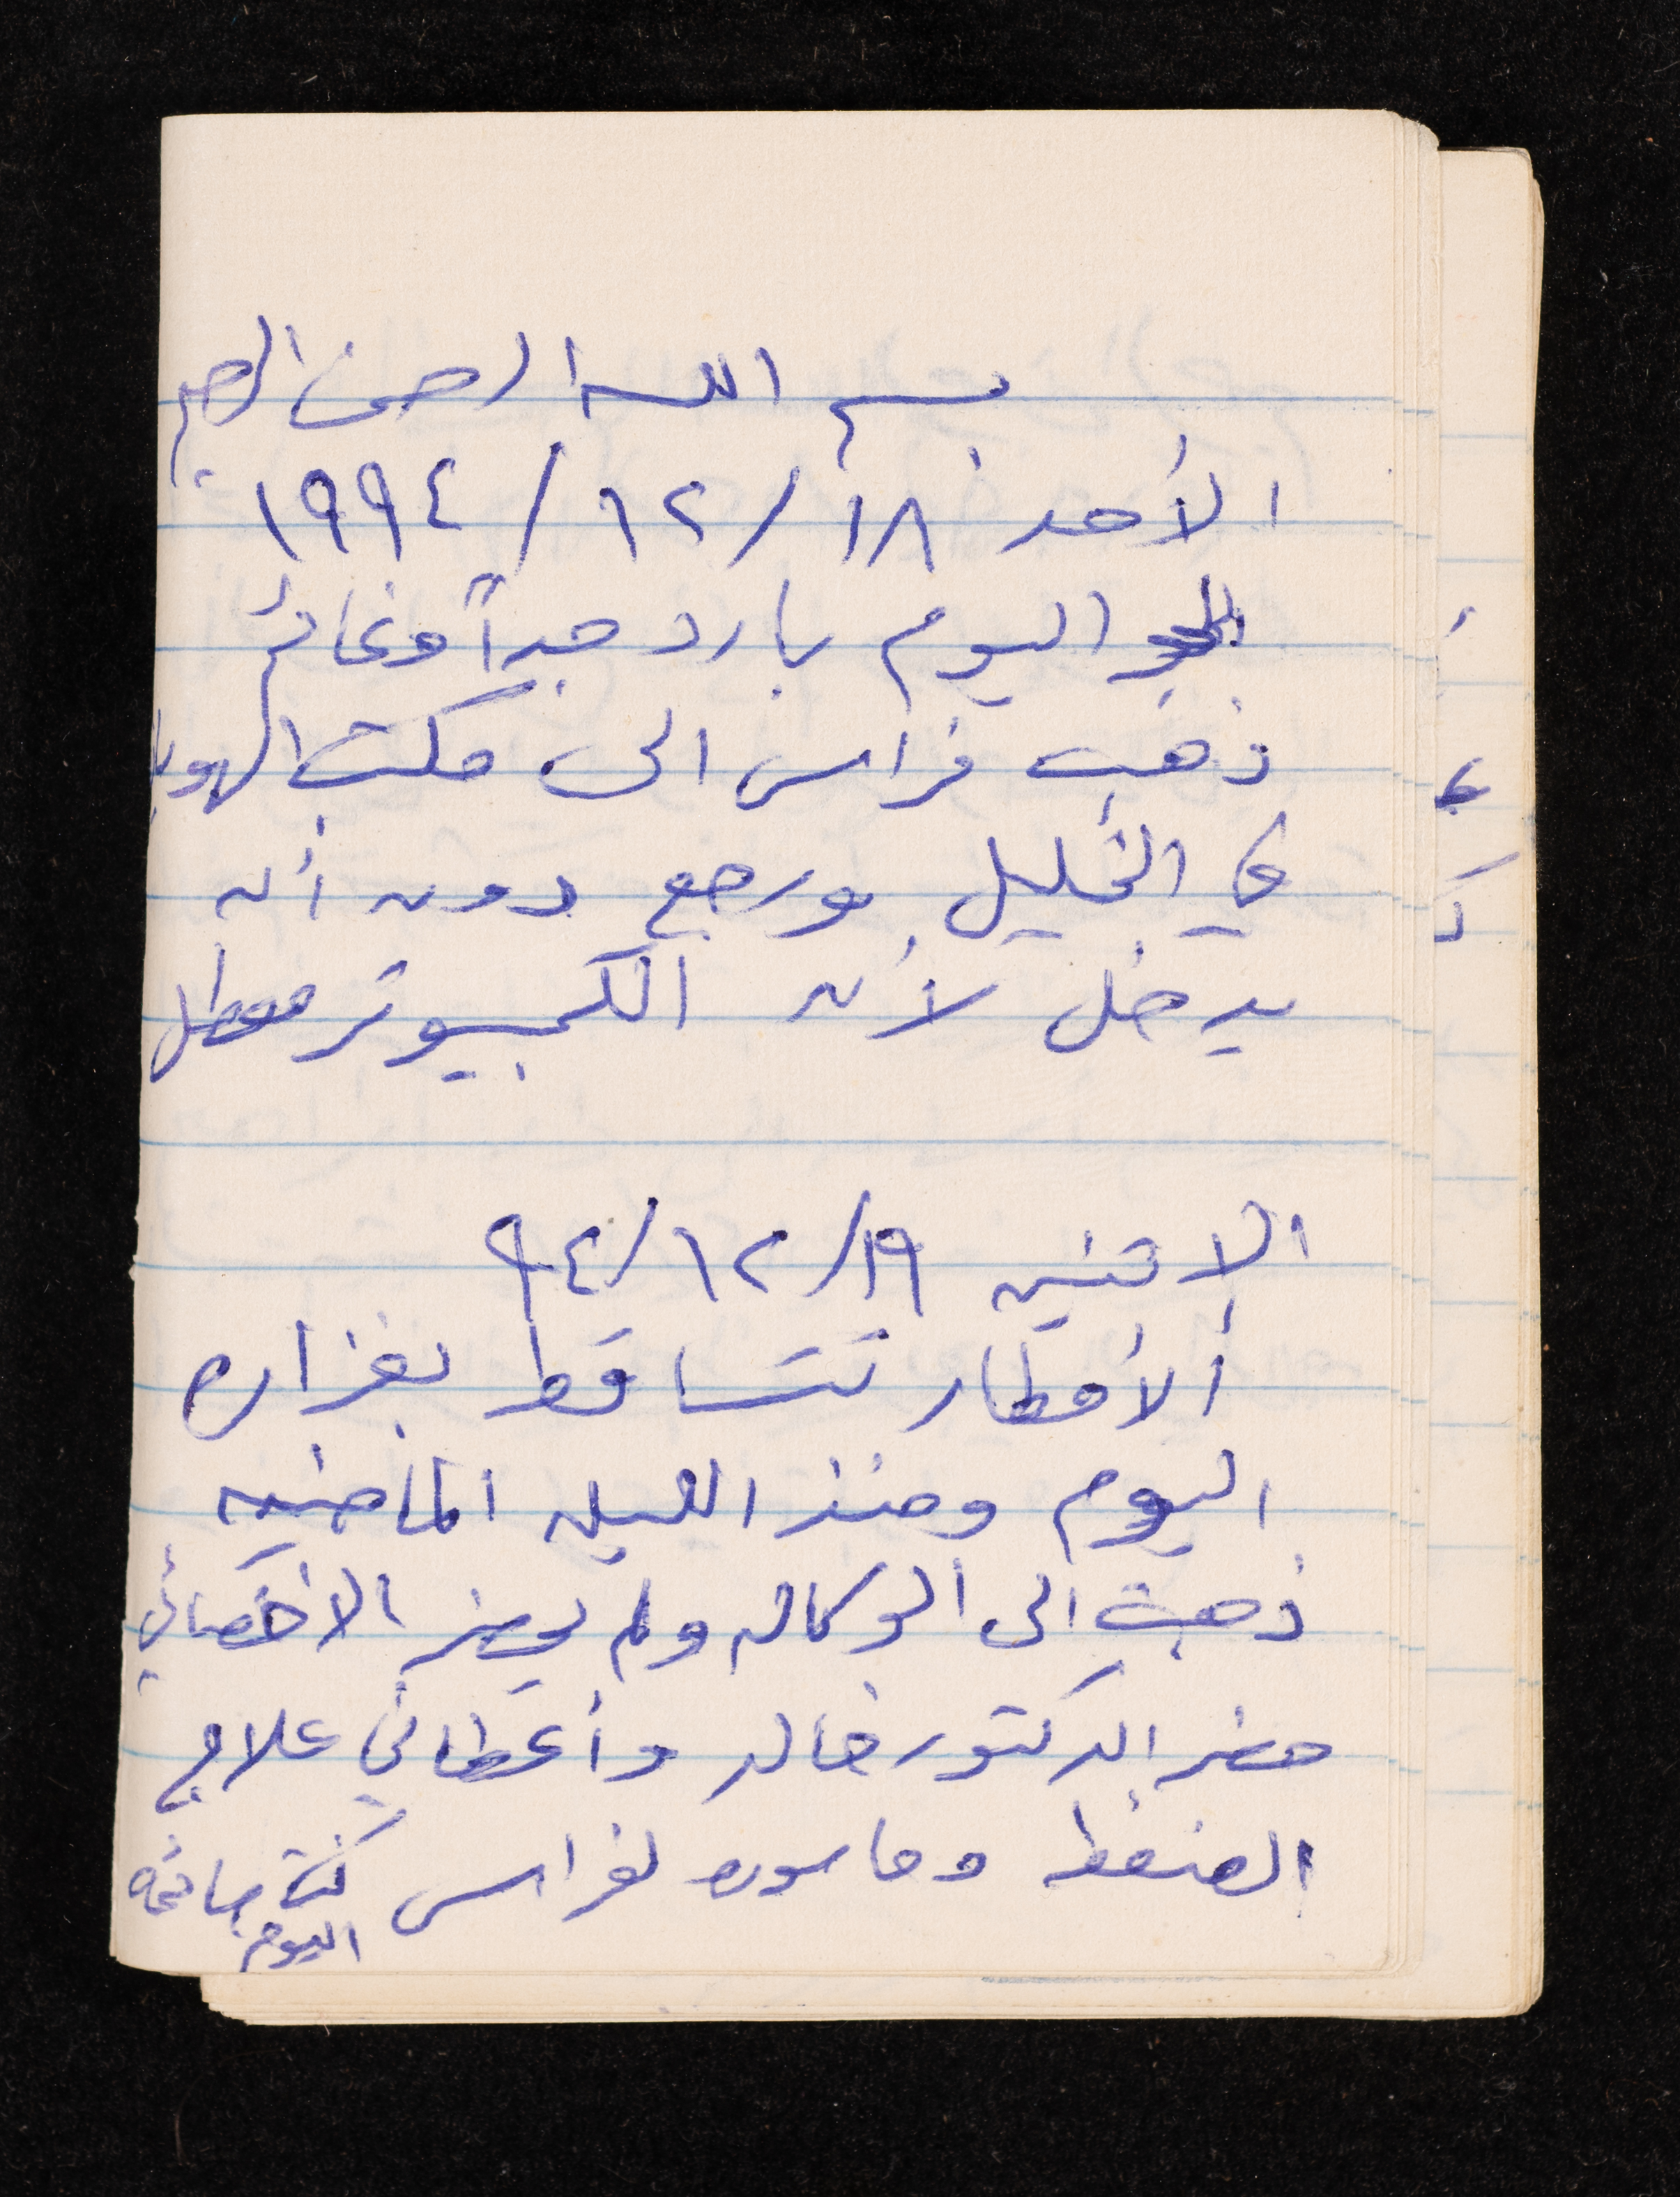 بسم الله الرحمن الرحيم
الأحد ١٨/١٢/١٩٩٤
الجو اليوم بارد جداً وغائم
ذهب فراس الى مكتب الهويا
في الخليل ورجع دون أن
يدخل لأن الكمبيوتر معطل
الاثنين ١٩/١٢/٩٤
الأمطار تتساقط بغزاره
اليوم ومنذ الليله الماضيه
ذهبت الى الوكاله ولم يحضر الاخصائي
حضر الدكتور خالد وأعطاني علاج
الضغط وماسوره لفراس كنت صائمه
اليوم